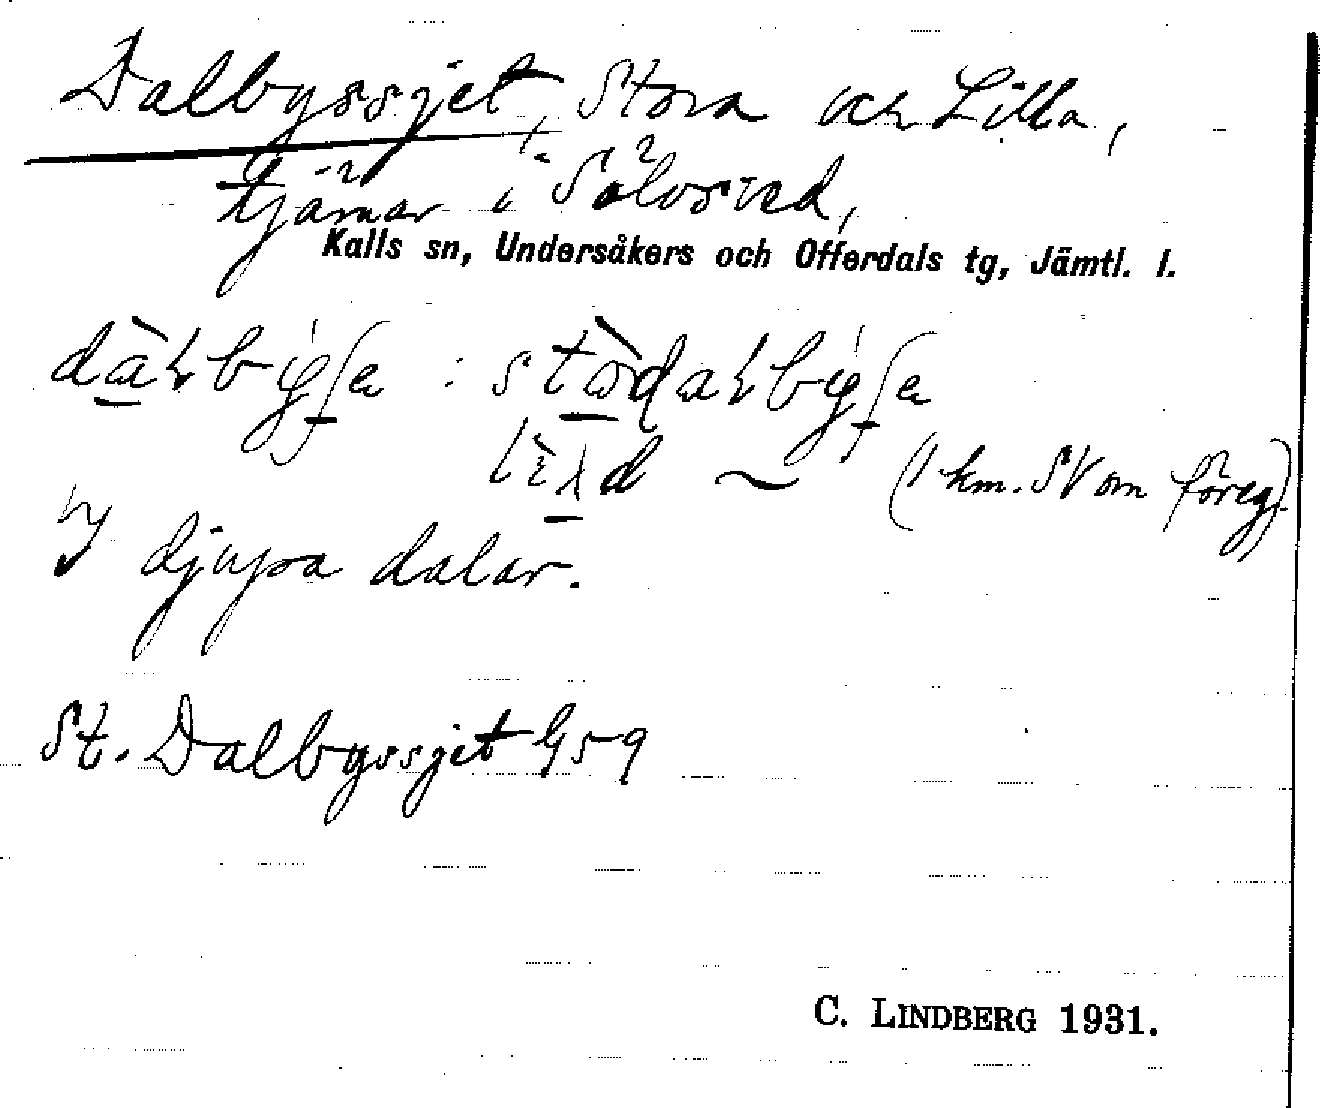 Dalbyssjet, Stora och Lilla,
tjärnar i Sölvsved,
Kalls sn, Undersåkers och Offerdals tg, Jämtl. l.
(1 km. SV om föreg)
I djupa dalar.
St. Dalbyssjet G59
C. LINDBERG 1931.